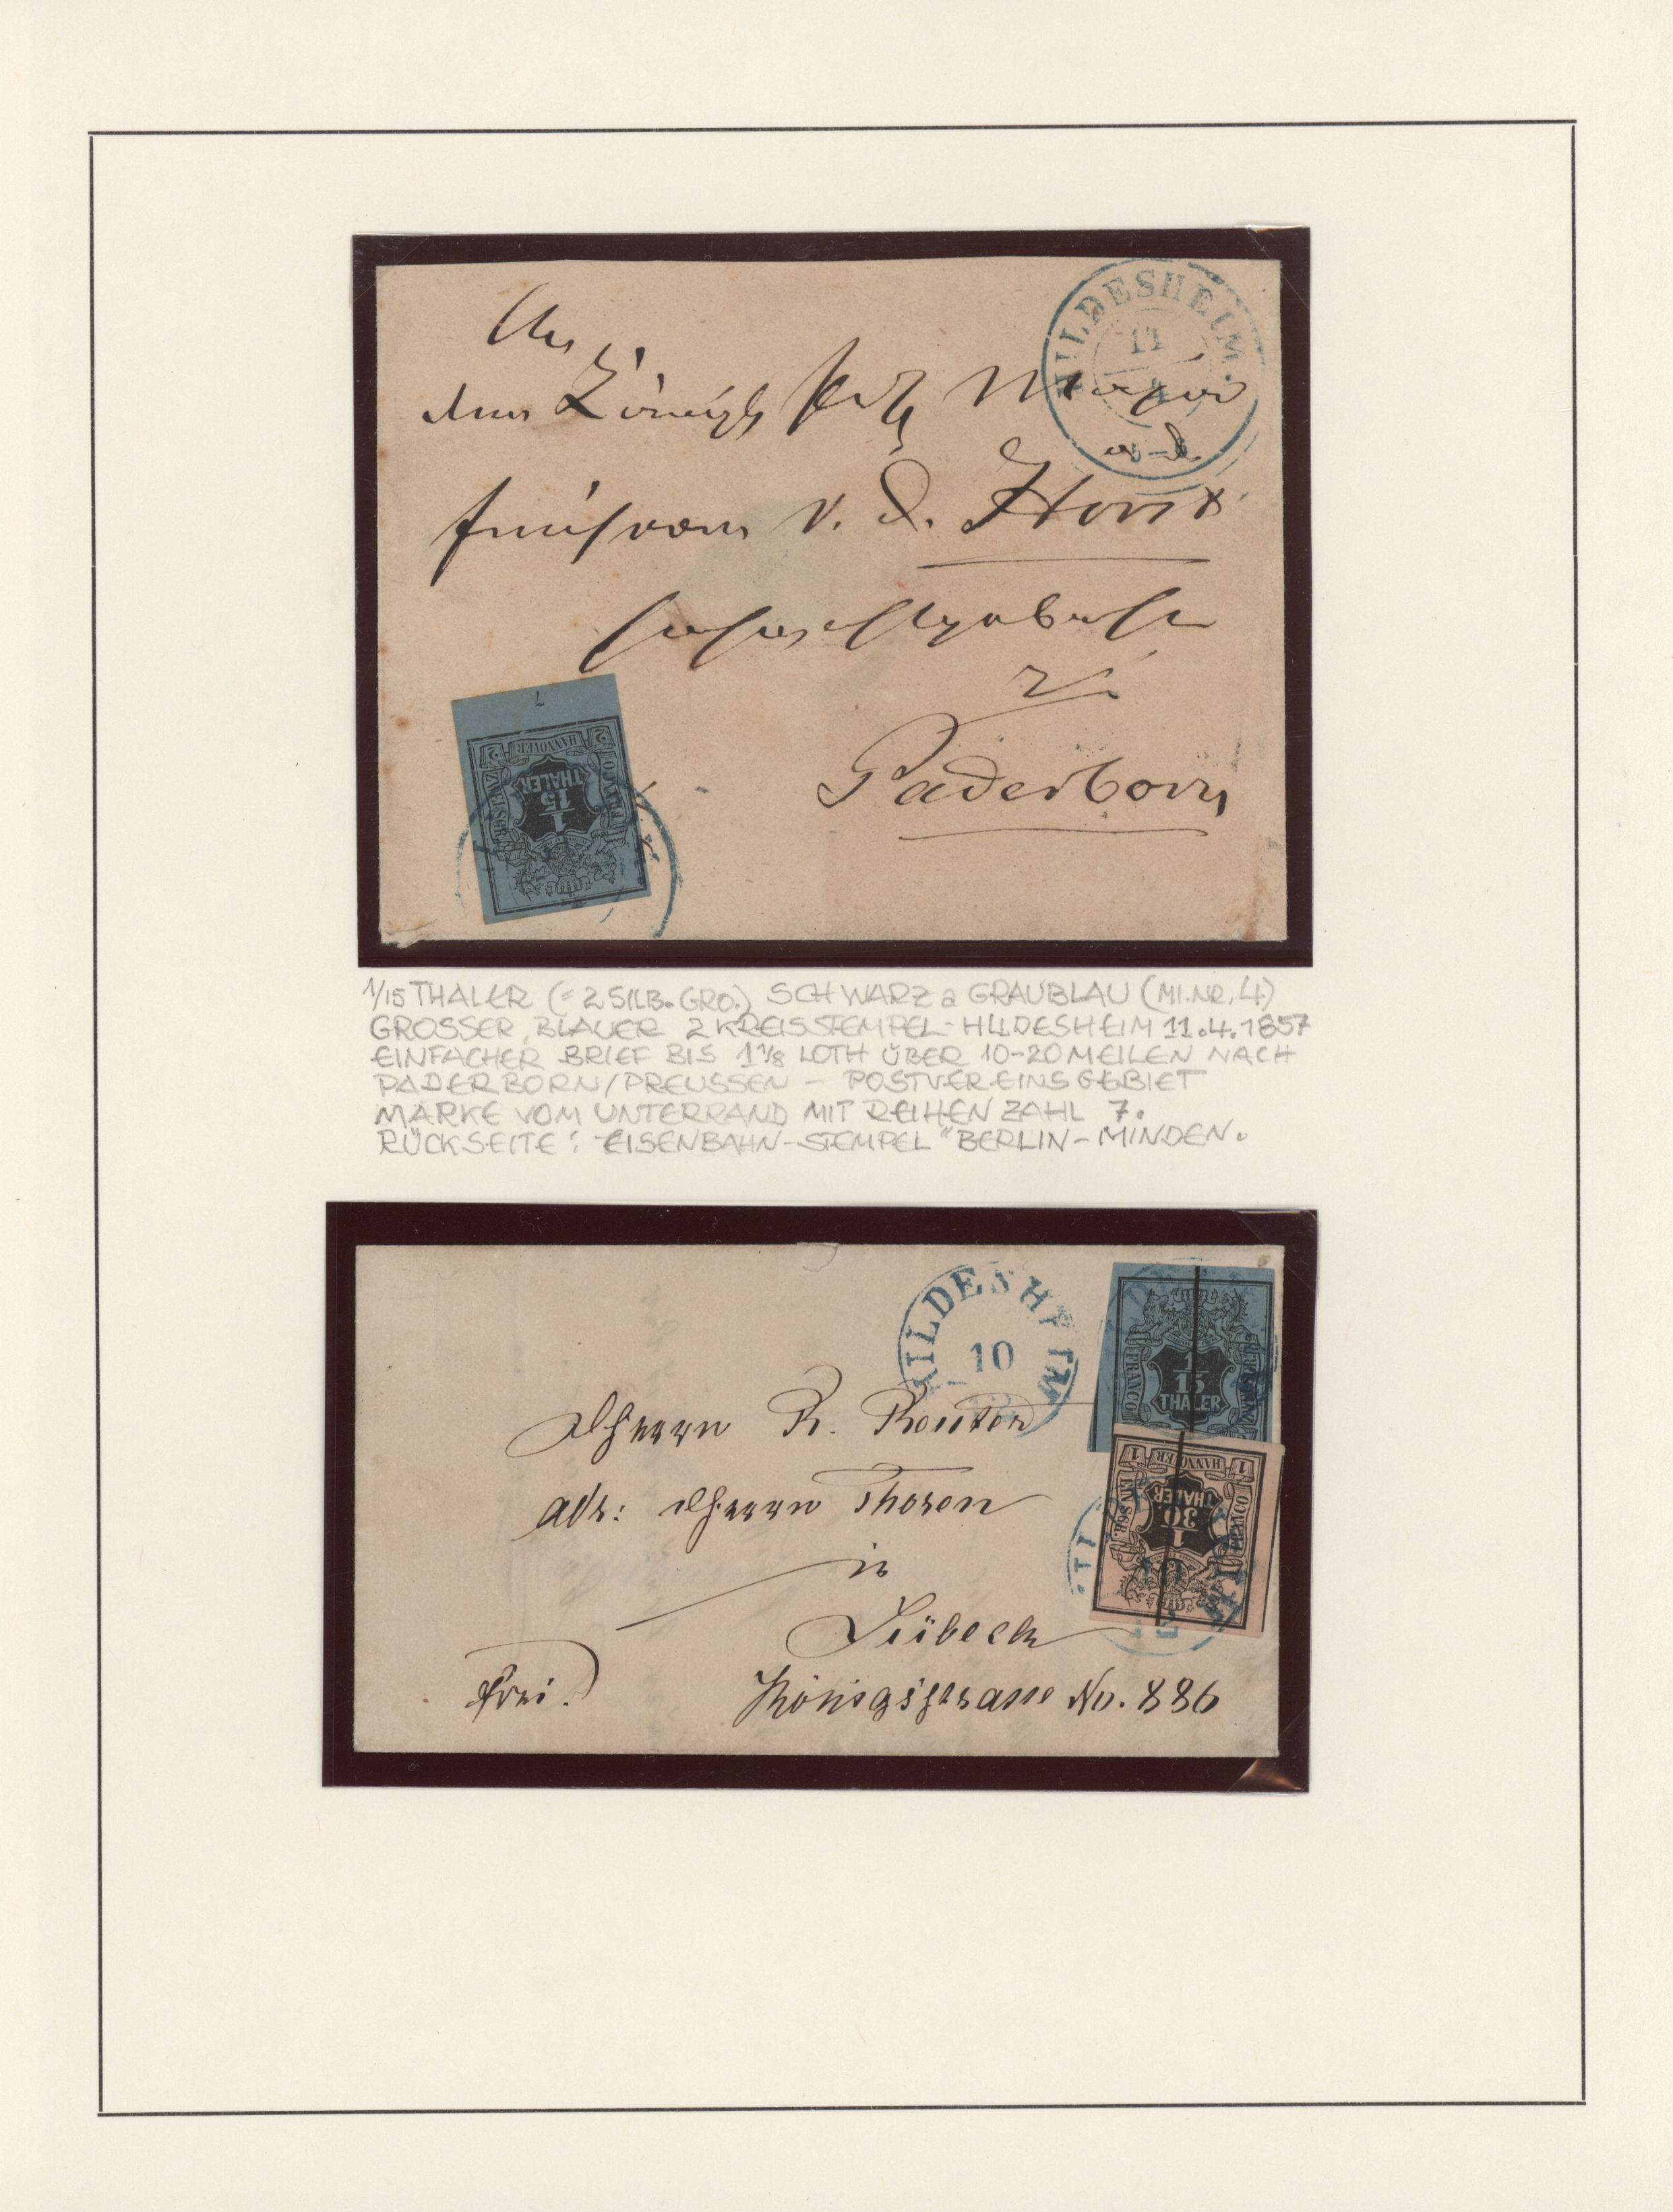 An
HILDESHEIM.
11
4
den Königl. Major
a. D.
Freiherrn v. d. Horst
Hochwohlgeboren
zu
Paderborn
7
2 HANNOVER 2
FRANCO
EIN GGR.
1
15
THALER
1/15 THALER (= 2 SILB. GRO.) SCHWARZ a GRAUBLAU (MI. NR. 4.)
GROSSER, BLAUER 2 KREISSTEMPEL - HILDESHEIM 11.4.1857
EINFACHER BRIEF BIS 1 1/8 LOTH ÜBER 10-20 MEILEN NACH
PADERBORN/PREUSSEN - POSTVEREINSGEBIET
MARKE VOM UNTERRAND MIT REIHENZAHL 7.
RÜCKSEITE: EISENBAHN-STEMPEL "BERLIN-MINDEN.
HILDESHEIM
10
FRANCO
1
15
THALER
1 HANNOVER 1
FRANCO
EIN SGR.
1
30
THALER
Herrn R. Reuter
adr: Herrn Thoren
in
Lübeck
frei.
Königsstrasse No. 886